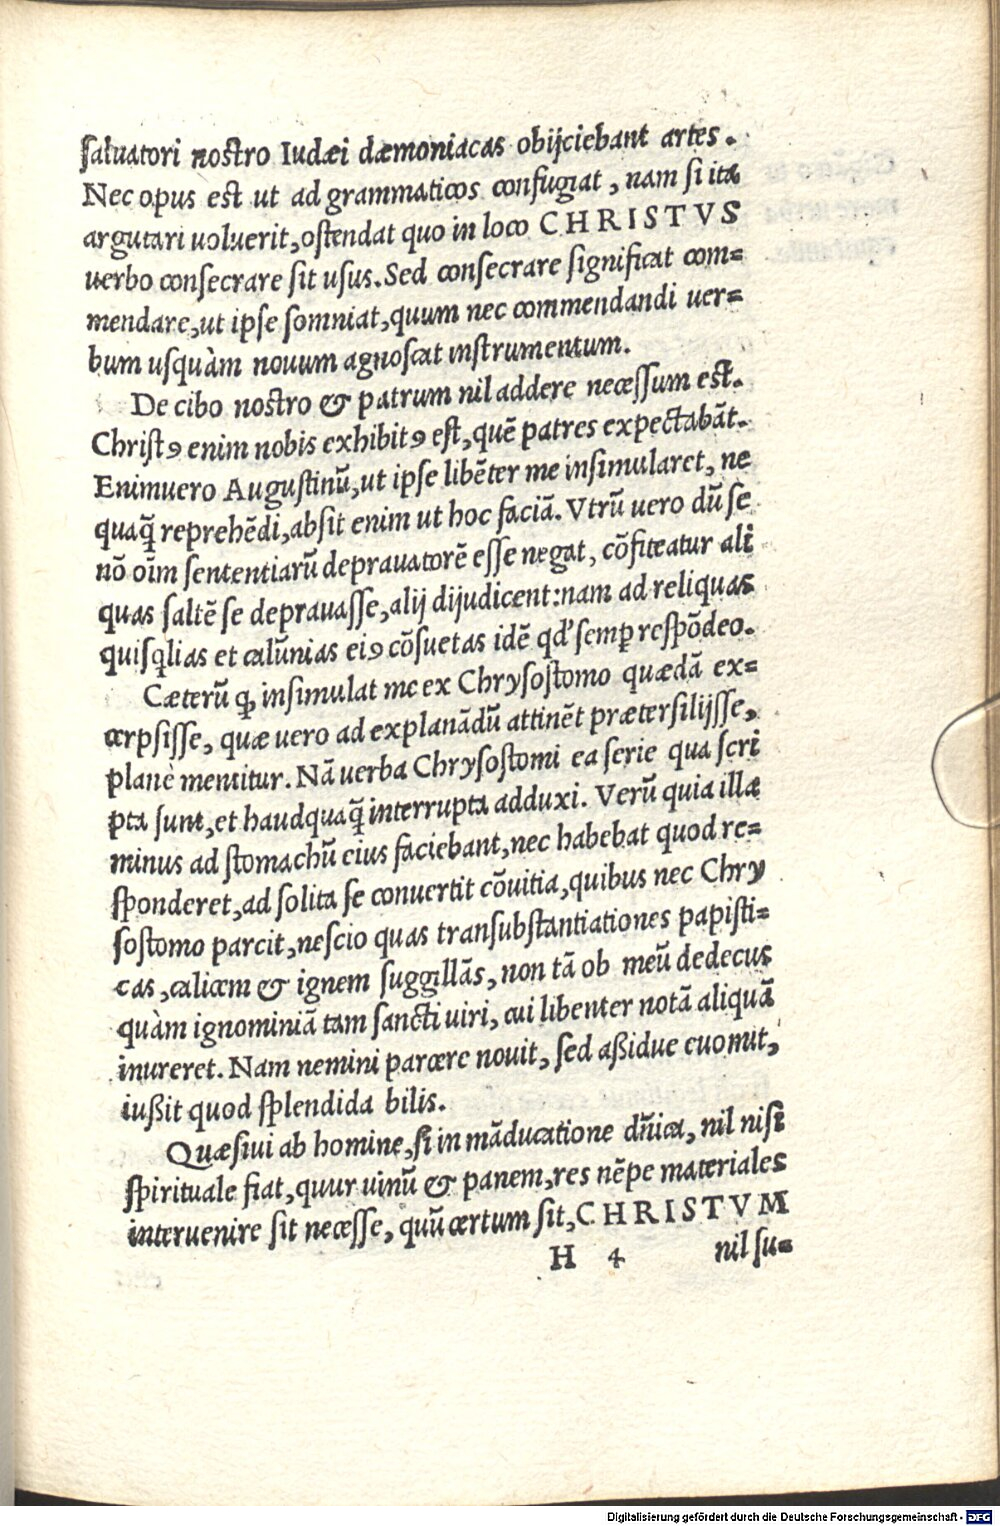 saluatori nostro Iudæi dæmoniacas obijciebant artes.
Nec opus est ut ad grammaticos confugiat, nam si ita
argutari uoluerit, ostendat quo in loco CHRISTVS
uerbo consecrare sit usus. Sed consecrare significat com=
mendare, ut ipse somniat, quum nec commendandi uer=
bum usquàm nouum agnoscat instrumentum.
De cibo nostro & patrum nil addere necessum est.
Christꝰ enim nobis exhibitꝰ est, quẽ patres expectabãt.
Enimuero Augustinũ, ut ipse libẽter me insimularet, ne
quaq̃ reprehẽdi, absit enim ut hoc faciã. Vtrũ uero dũ se
nõ oĩm sententiarũ deprauatorẽ esse negat, cõfiteatur ali
quas saltẽ se deprauasse, alij dijudicent: nam ad reliquas
quisq̃lias et calũnias eiꝰ cõsuetas idẽ qd' semꝑ respõdeo.
Cæterũ ꝙ insimulat me ex Chrysostomo quædã ex=
cerpsisse, quæ uero ad explanãdũ attinẽt prætersilijsse,
planè mentitur. Nã uerba Chrysostomi ea serie qua scri
pta sunt, et haudquaq̃ interrupta adduxi. Verũ quia illæ
minus ad stomachũ eius faciebant, nec habebat quod re=
sponderet, ad solita se conuertit cõuitia, quibus nec Chry
sostomo parcit, nescio quas transubstantiationes papisti=
cas, calicem & ignem suggillãs, non tã ob meũ dedecus
quàm ignominiã tam sancti uiri, cui libenter notã aliquã
inureret. Nam nemini parcere nouit, sed aßidue euomit,
iußit quod splendida bilis.
Quæsiui ab homine, si in mãducatione dñica, nil nisi
spirituale fiat, quur uinũ & panem, res nẽpe materiales
interuenire sit necesse, quũ certum sit, CHRISTVM
H 4 nil su=
Digitalisierung gefördert durch die Deutsche Forschungsgemeinschaft - DFG